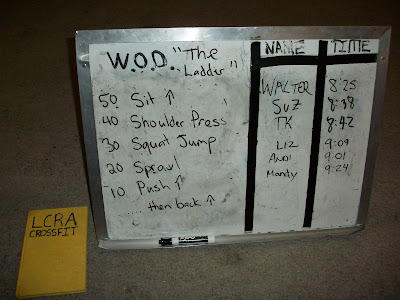 W.O.D. "The Ladder"
50 Sit ↑
40 Shoulder Press
30 Squat Jump
20 Sprawl
10 Push ↑
....then back ↑
NAME TIME
WALTER 8:25
SUZ 8:38
TK 8:42
LIZ 9:09
ANDI 9:01
Mandy 9:24
LCRA
CROSSFIT